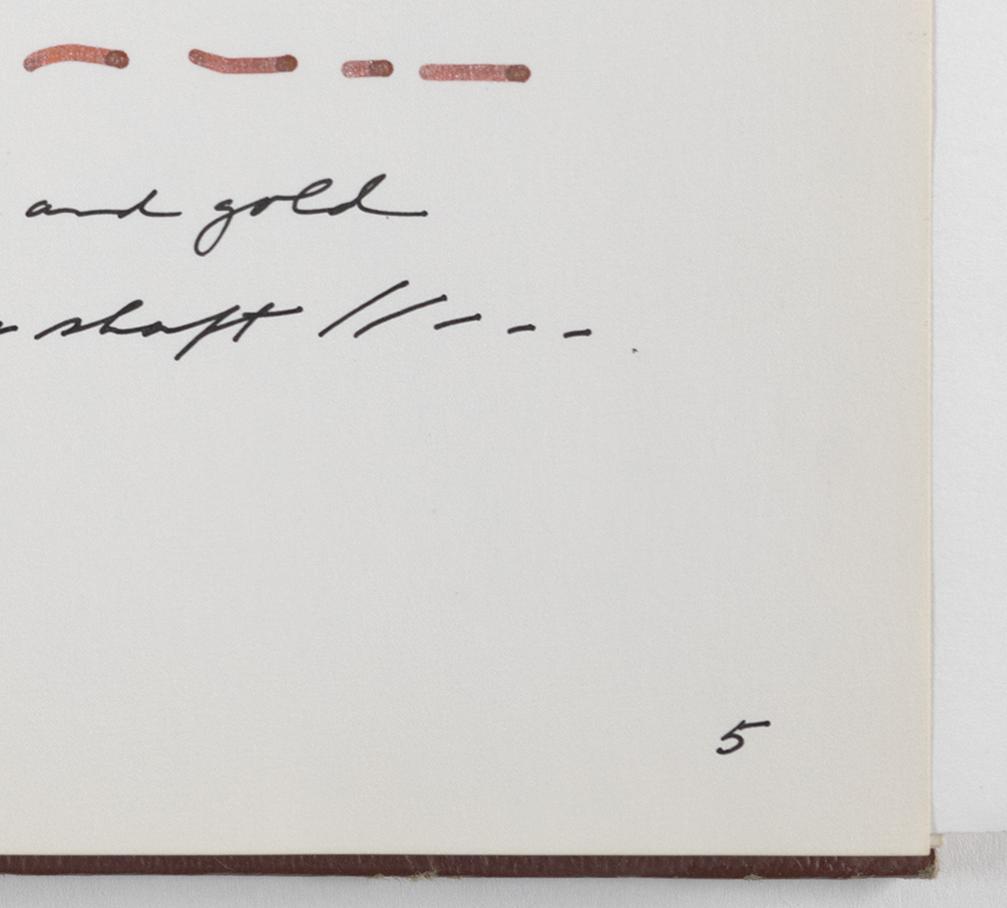 and gold
shaft // - - -
5